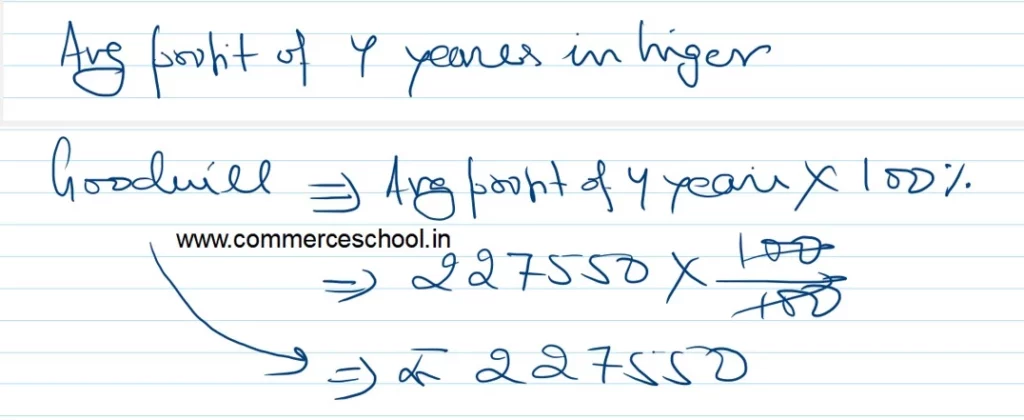 Avg profit of 4 years in higer
Goodwill ⇒ Avg profit of 4 years × 100%
www.commerceschool.in
⇒ 227550 × 100/100
⇒ ₹ 227550